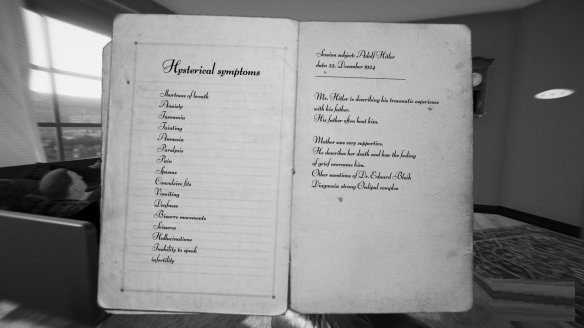 Hysterical symptoms
Shortness of breath
Anxiety
Insomnia
Fainting
Amnesia
Paralysis
Pain
Spasms
Convulsive fits
Vomiting
Deafness
Bizarre movements
Seizures
Hallucinations
Inability to speak
infertility
Session subject: Adolf Hitler
date: 22. December 1924
Mr. Hitler is describing his traumatic experience
with his father.
His father often beat him.
Mother was very supportive.
He describes her death and how the feeling
of grief overcame him.
Other mentions of Dr. Eduard Bloch
Diagnosis: strong Oedipal complex